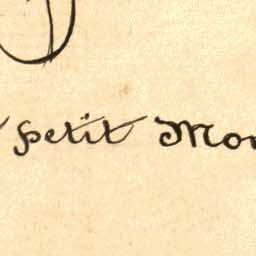 petit Mon